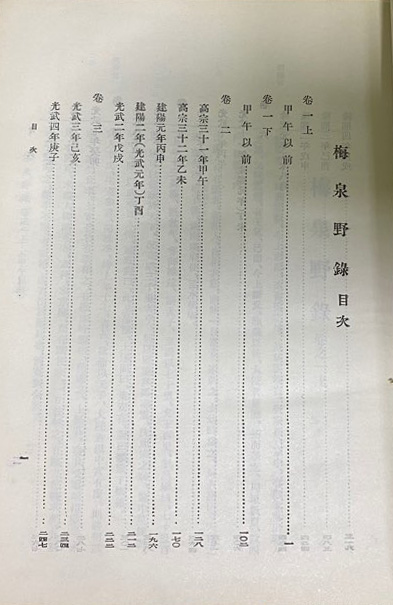 梅泉野錄 目次
卷一上
甲午以前……一
卷一下
甲午以前……一〇二
卷二
高宗三十一年甲午……一二八
高宗三十二年乙未……一七〇
建陽元年丙申……一九六
建陽二年(光武元年)丁酉……二一二
光武二年戊戌……二二二
卷三
光武三年己亥……二三四
光武四年庚子……二四七
目次
一